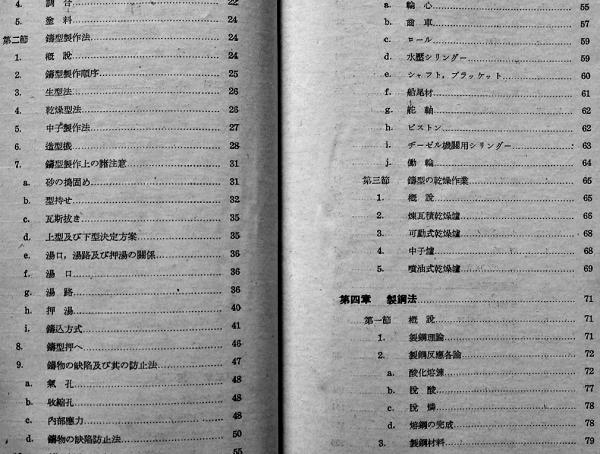 4. 調合 22
5. 塗料 24
第二節 鑄型製作法 24
1. 概說 24
2. 鑄型製作順序 25
3. 生型法 26
4. 乾燥型法 26
5. 中子製作法 27
6. 造型機 28
7. 鑄型製作上の諸注意 31
a. 砂の搗固め 31
b. 型持せ 32
c. 瓦斯抜き 35
d. 上型及び下型決定方案 35
e. 湯口，湯路及び押湯の關係 36
f. 湯口 36
g. 湯路 36
h. 押湯 40
i. 鑄込方式 41
8. 鑄型押へ 46
9. 鑄物の缺陷及び其の防止法 47
a. 氣孔 48
b. 收縮孔 48
c. 內部應力 48
d. 鑄物の缺陷防止法 50
55
a. 輪心 55
b. 齒車 57
c. ロール 59
d. 水壓シリンダー 59
e. シャフト，ブラッケット 60
f. 船尾材 61
g. 舵軸 62
h. ピストン 62
i. ヂーゼル機關用シリンダー 63
j. 働輪 64
第三節 鑄型の乾燥作業 65
1. 概說 65
2. 煉瓦積乾燥爐 66
3. 可動式乾燥爐 68
4. 中子爐 68
5. 噴油式乾燥爐 69
第四章 製鋼法 71
第一節 概說 71
1. 製鋼理論 71
2. 製鋼反應各論 72
a. 酸化熔煉 72
b. 脫酸 77
c. 脫燐 78
d. 熔鋼の完成 78
3. 製鋼材料 79